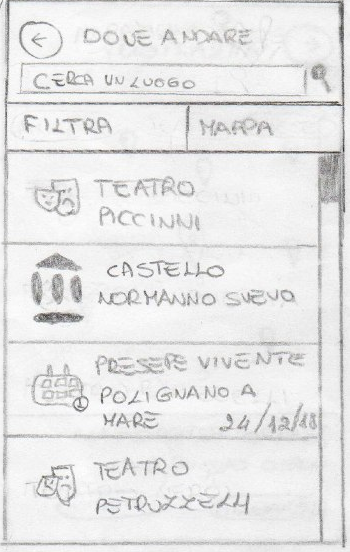 DOVE ANDARE
CERCA UN LUOGO
FILTRA
MAPPA
TEATRO
PICCINNI
CASTELLO
NORMANNO SVEVO
PRESEPE VIVENTE
POLIGNANO A
MARE 24/12/18
TEATRO
PETRUZZELLI